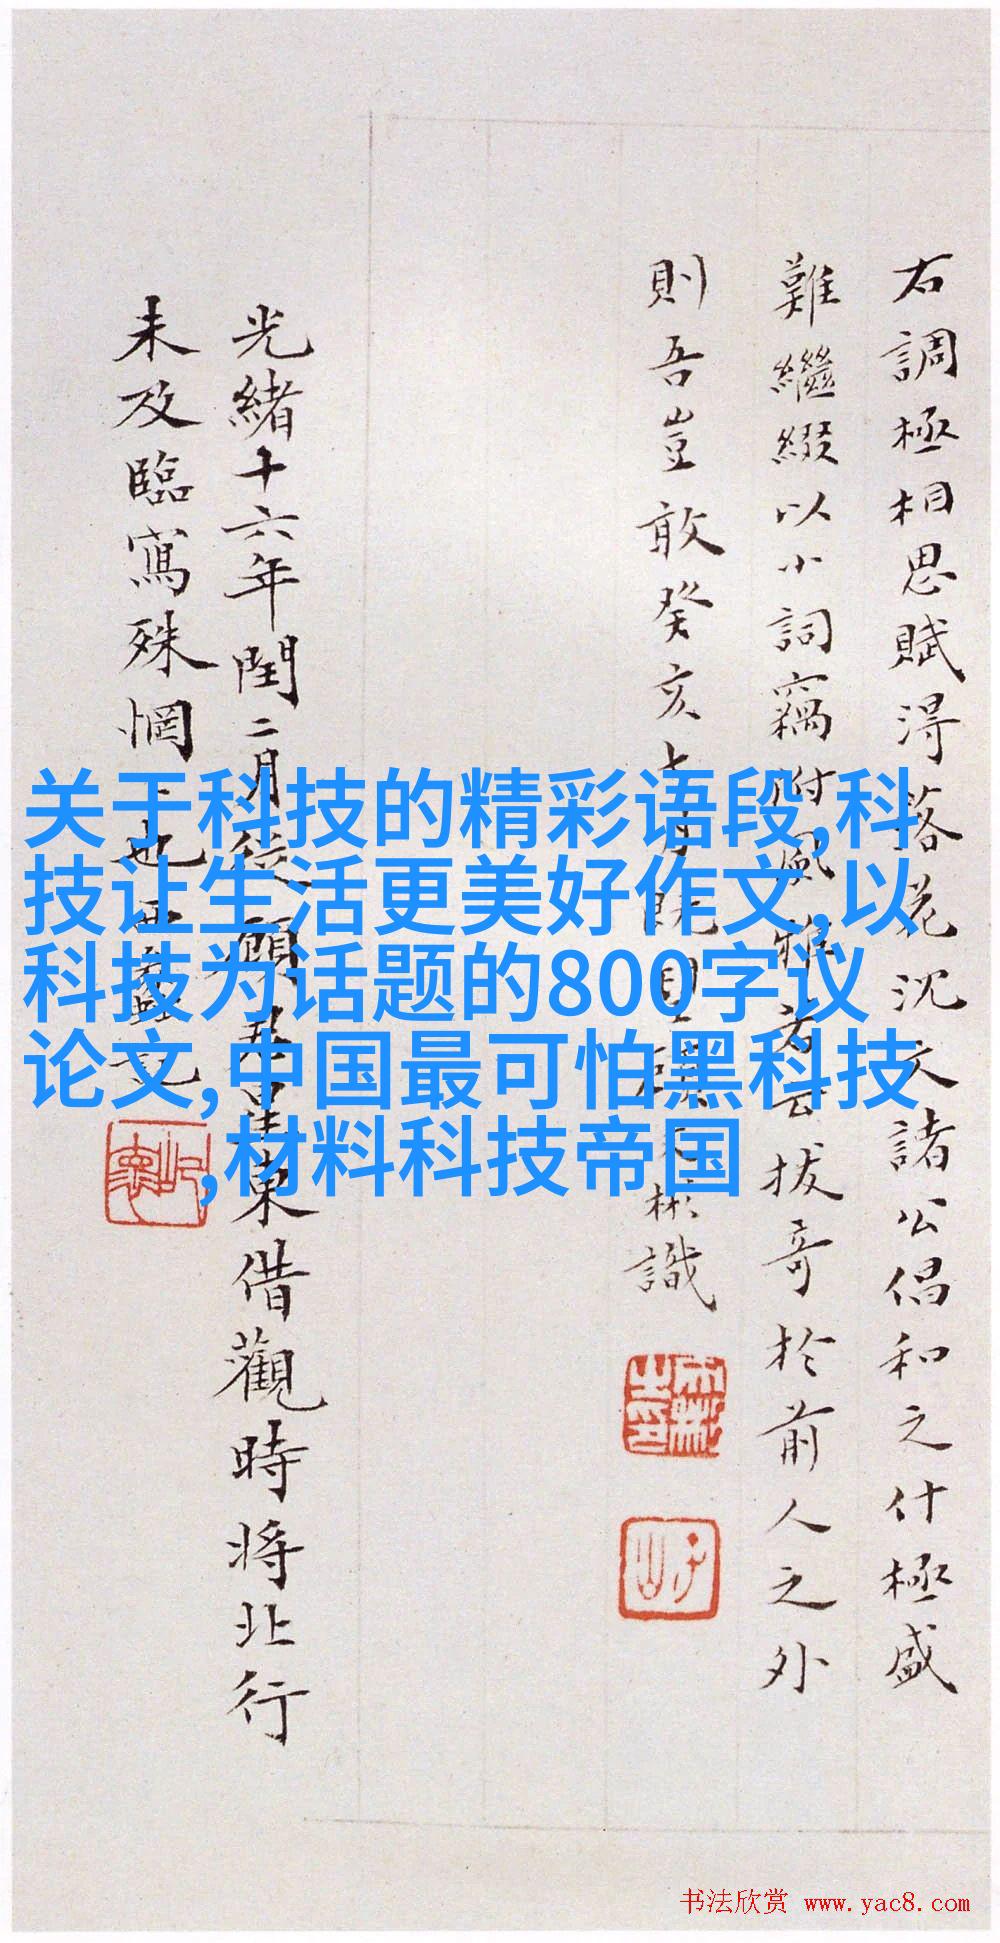 右調極相思賦得落花沈文諸公倡和之什極盛
難繼綴以小詞竊附風雅若云拔奇於前人之外
則吾豈敢癸亥七月既
彬識
光緒十六年閏二月從顧
東借觀時將北行
未及臨寫殊惘
也
关于科技的精彩语段,科
技让生活更美好作文,以
科技为话题的800字议
论文,中国最可怕黑科技
,材料科技帝国
书法欣赏 www.yac8.com